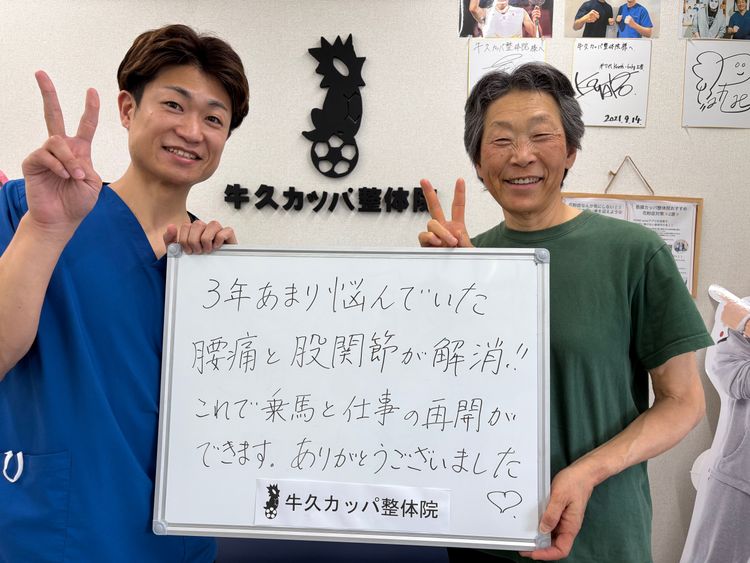 牛久カッパ整体院様へ
牛久カッパ整体院様へ
2021.9.14
牛久カッパ整体院
3年あまり悩んでいた
腰痛と股関節が解消!!
これで乗馬と仕事の再開が
できます。ありがとうございました
♡
牛久カッパ整体院